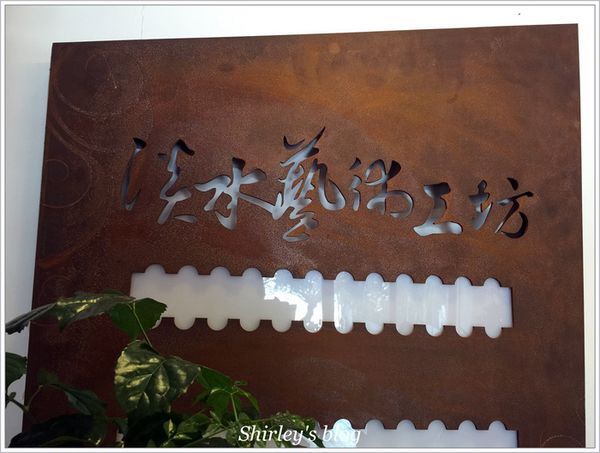 淡水藝術工坊
Shirley's blog